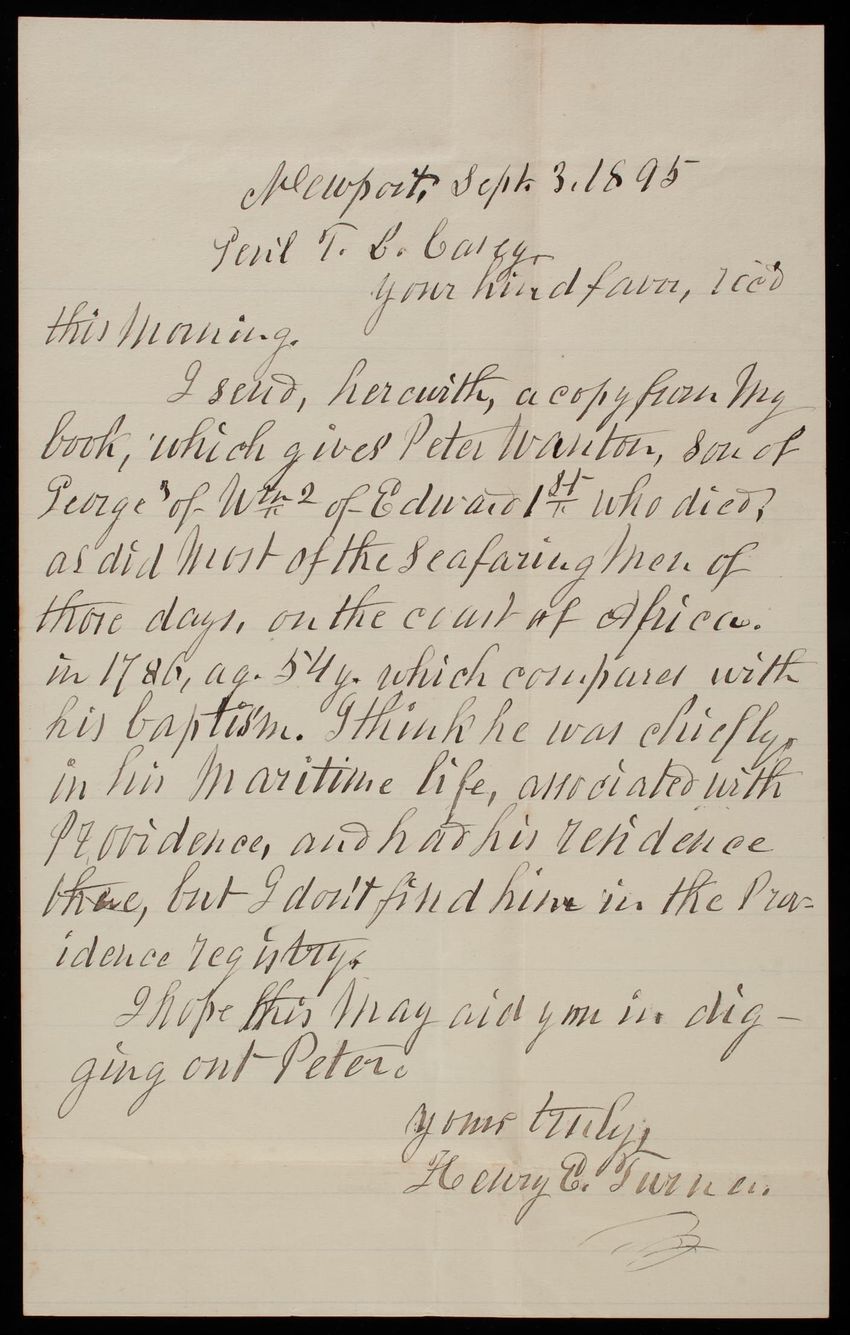 Newport, Sept. 3. 1895
Genl T. L. Casey.
Your kind favor, rec'd
this morning.
I send, herewith, a copy from my
book, which gives Peter Wanton, son of
George 3 of Wm 2 of Edward 1st who died,
as did most of the seafaring men of
those days, on the coast of Africa.
in 1786, ag. 54 y. which compares with
his baptism. I think he was chiefly,
in his maritime life, associated with
Providence, and had his residence
there, but I don't find him in the Prov-
idence registry.
I hope this may aid you in dig-
ging out Peter.
Yours truly,
Henry E. Turner.